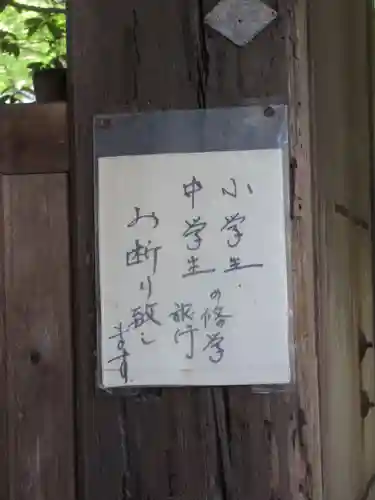 小学生・
中学生の修学
旅行
お断り致し
ます